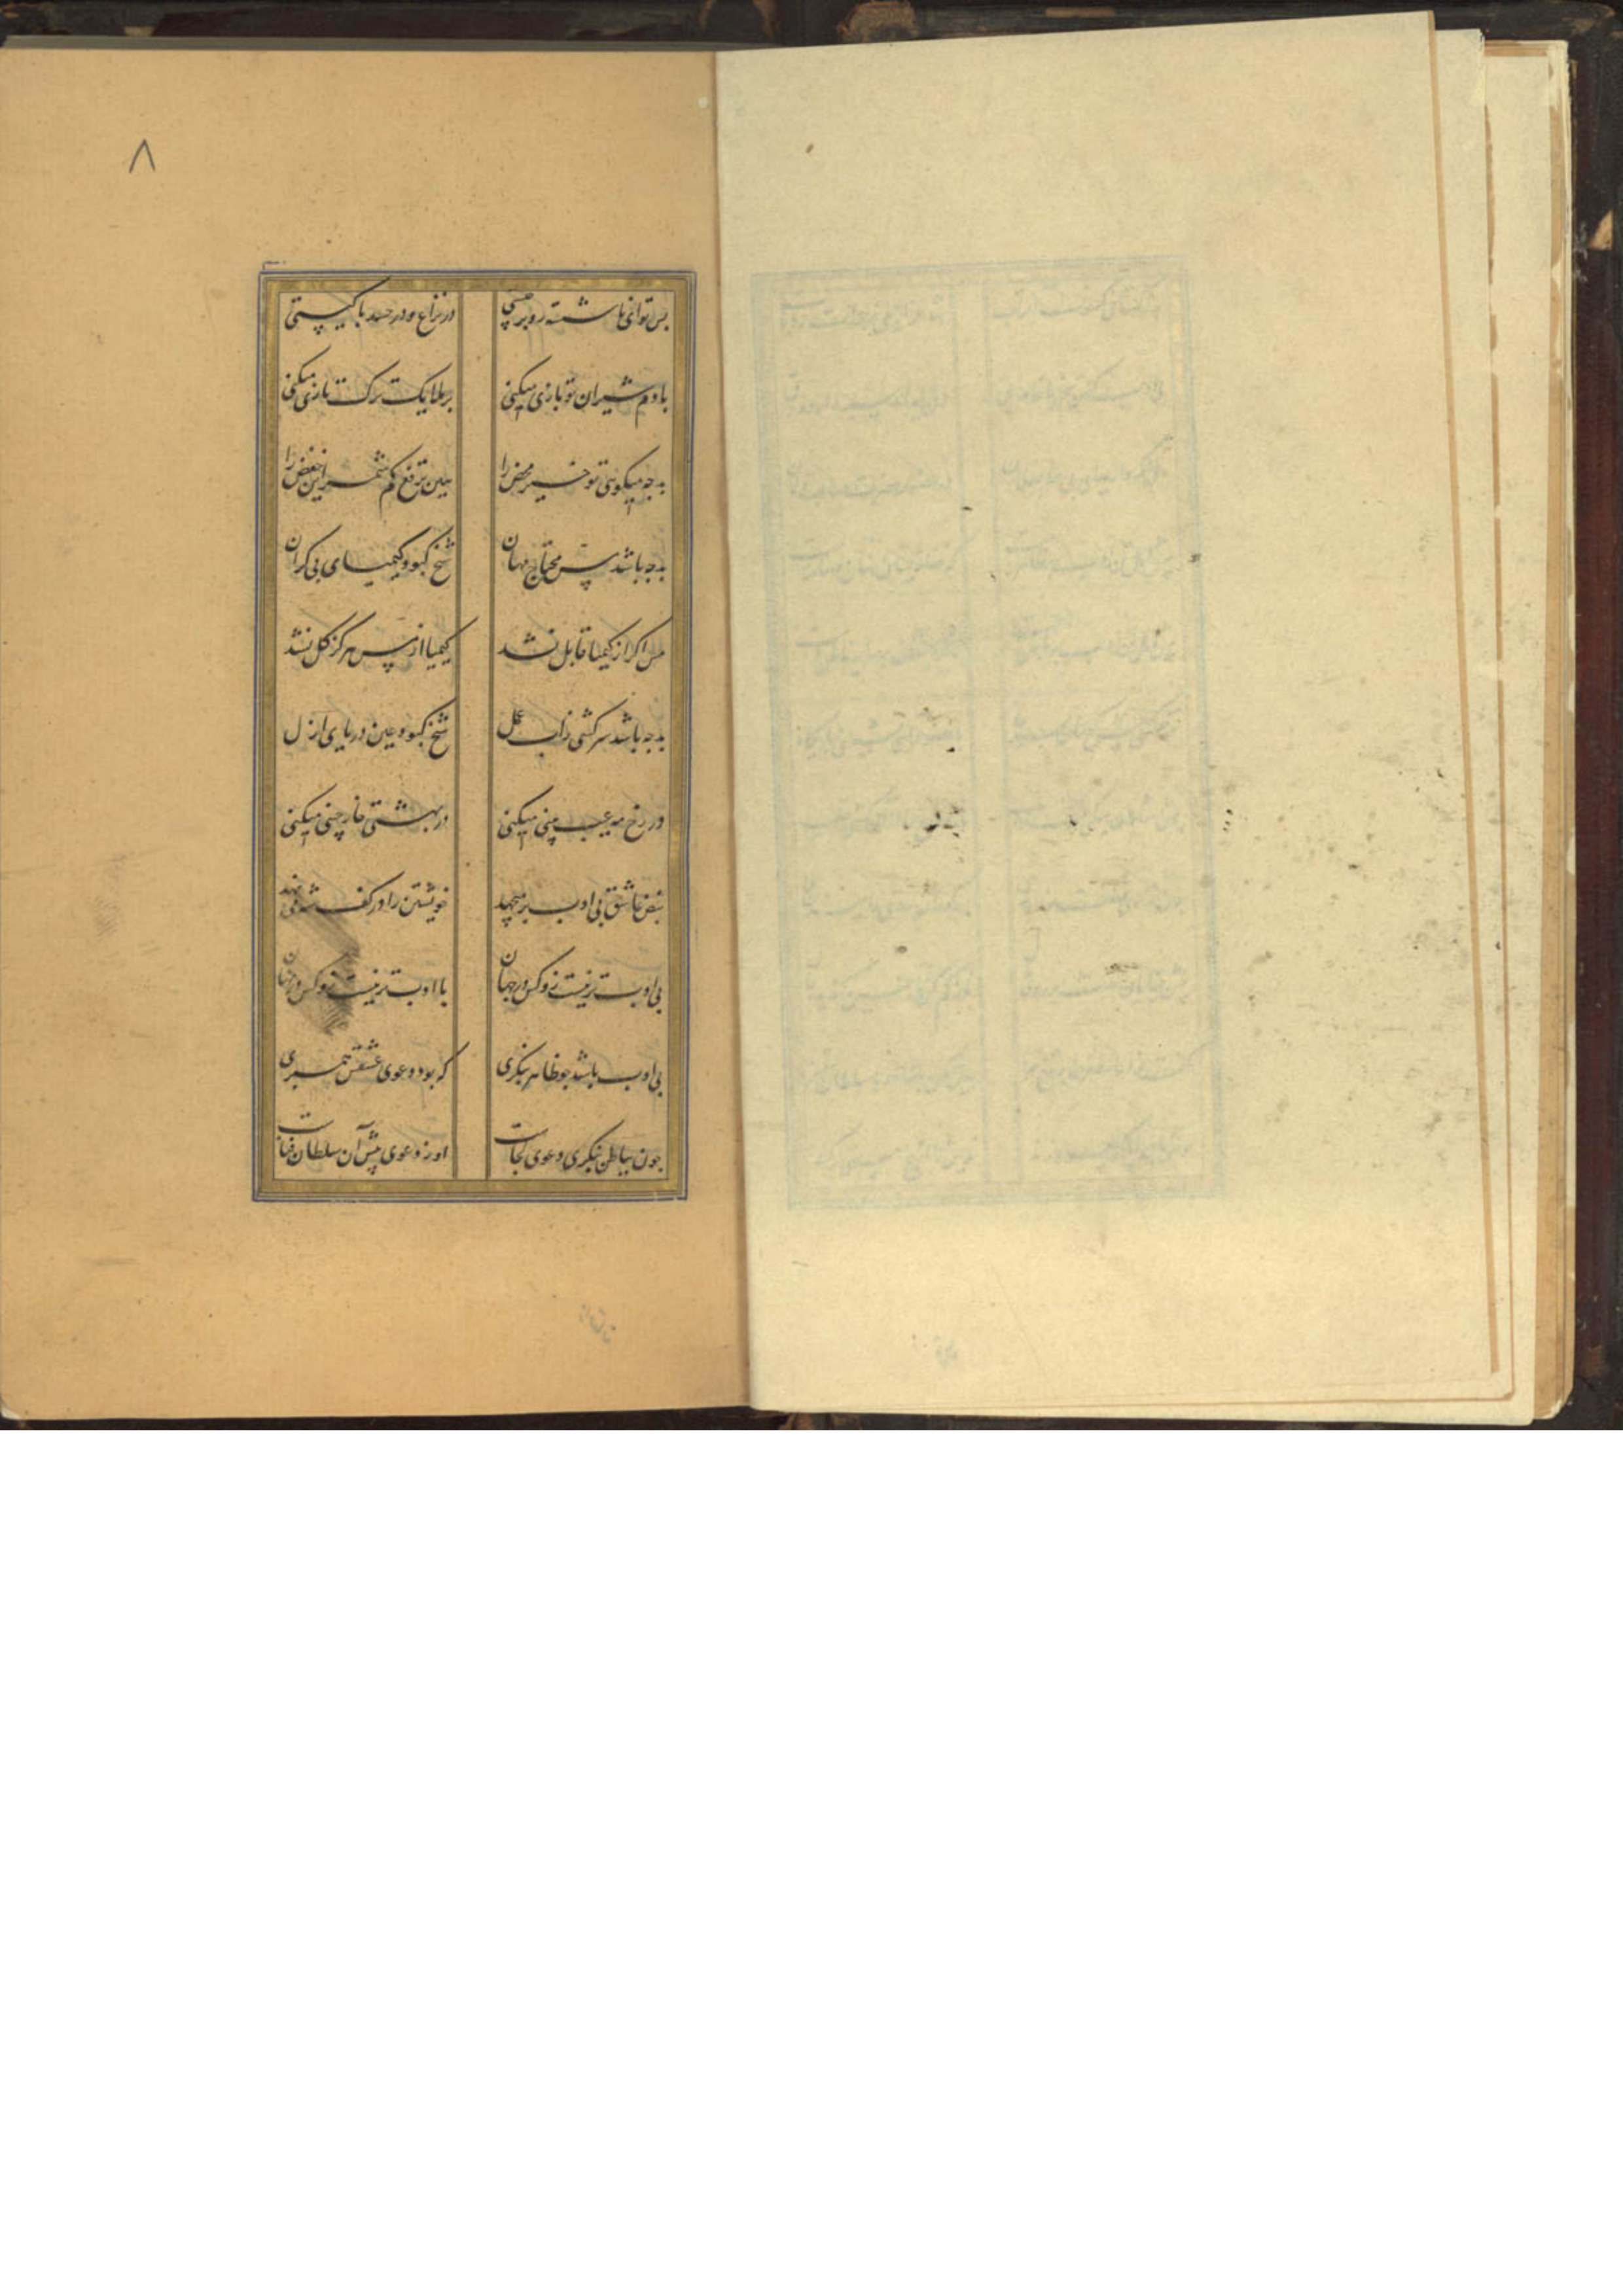 ۸
بس تو ای ناشسته رو بر چیستی در نزاع و در حسد با کیستی
با دم شیران تو بازی میکنی بر ملایک ترک تازی میکنی
بد چه میکویی تو خیر محض را هین ترفع کم شمر این خفض را
بد چه باشد مس محتاج مهان شیخ کبود کیمیای بی کران
مس اکر از کیمیا قابل نشد کیمیا از مس هرکز کل نشد
بد چه باشد سرکشی زاب عمل شیخ کبود عین دریای ازل
در رخ مه عیب بینی میکنی در بهشتی خار چینی میکنی
نبض عاشق بی ادب بر میجهد خویشتن را در کف شه می نهد
بی ادب تر نیست زو کس در جهان با ادب تر نیست زو کس در نهان
بی ادب باشد چو ظاهر بنکری که بود دعوی عشقش همسری
جون بباطن بنکری دعوی کجاست او و دعوی پیش آن سلطان فناست